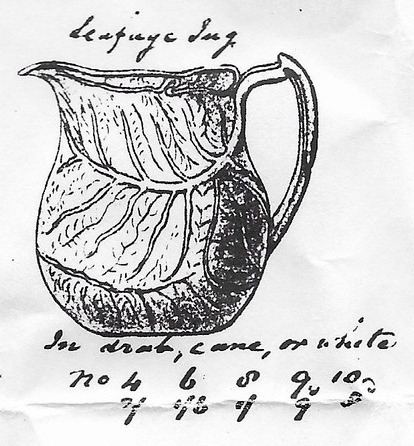 Leafage Jug
In drab, cane, or white
No 4 6 8 9 10